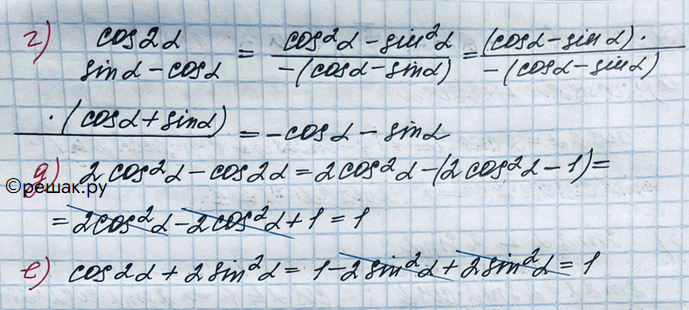 г) cos2α / (sinα − cosα) = (cos²α − sin²α) / (−(cosα − sinα)) = (cosα − sinα) · / −(cosα − sinα)
· (cosα + sinα) = −cosα − sinα
д) 2cos²α − cos2α = 2cos²α − (2cos²α − 1) =
©решак.ру
= 2cos²α − 2cos²α + 1 = 1
е) cos2α + 2sin²α = 1 − 2sin²α + 2sin²α = 1